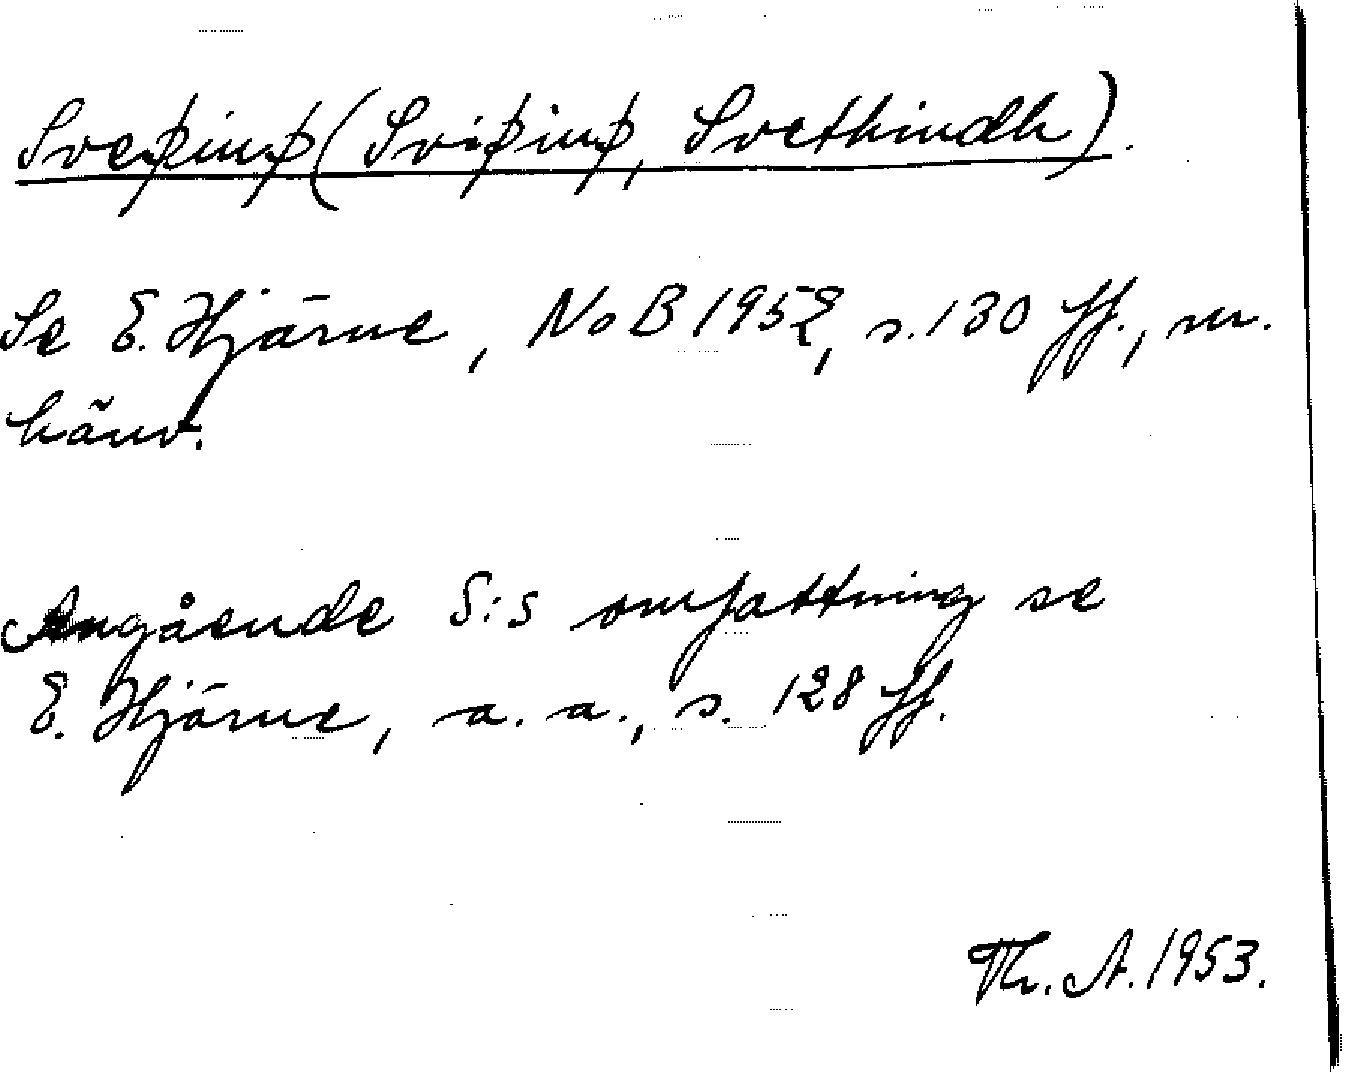 Sveþinþ (Sviþinþ, Svethindh).
Se E. Hjärne, NoB 1952, s. 130 ff., m.
hänv.
Angående S:s omfattning se
E. Hjärne, a. a., s. 128 ff.
Th. A. 1953.